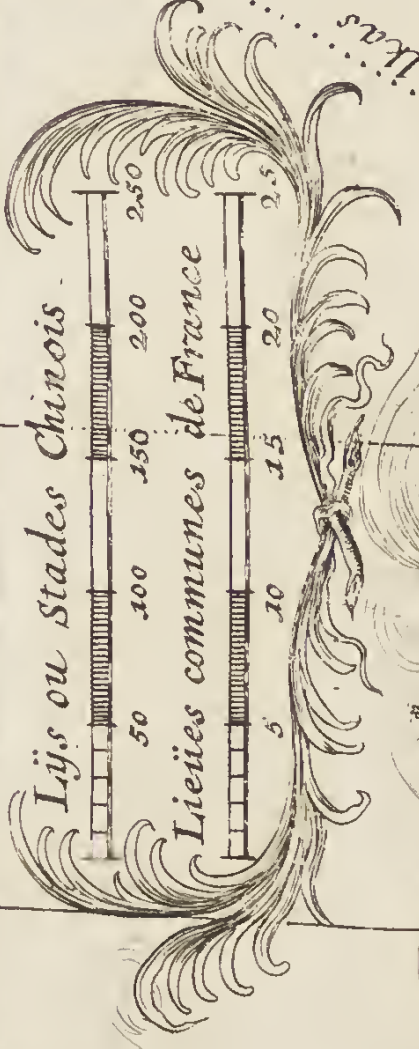 Lÿs ou Stades Chinois.
50 100 150 200 250
Lieües communes de France
5 10 15 20 25